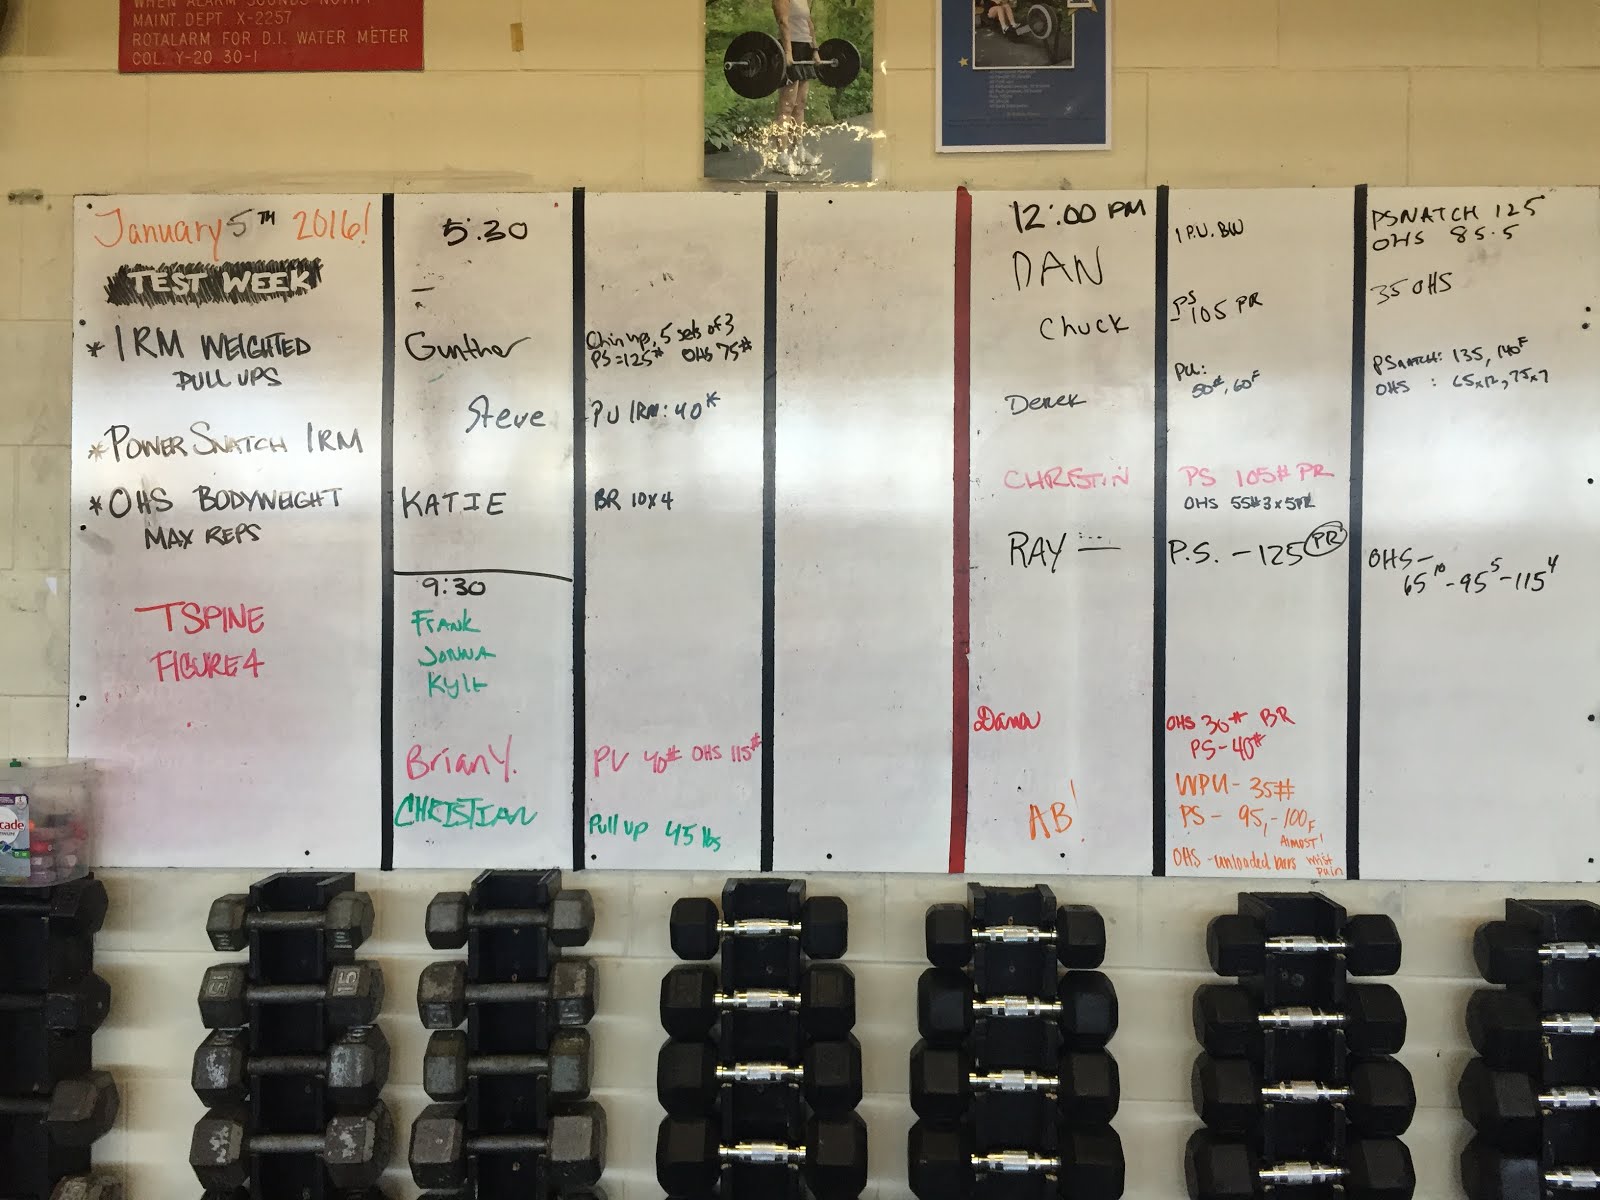 WHEN ALARM SOUNDS NOTIFY
MAINT. DEPT. X-2257
ROTALARM FOR D.I. WATER METER
COL. Y-20 30-1
January 5TH 2016!
TEST WEEK
* 1RM WEIGHTED
PULL UPS
* POWER SNATCH 1RM
* OHS BODYWEIGHT
MAX REPS
TSPINE
FIGURE 4
5:30
Gunther
Chin ups, 5 sets of 3
PS=125# OHS 75#
Steve
PU 1RM: 40#
KATIE
BR 10x4
9:30
Frank
Jonna
Kyle
Brian Y.
PU 40# OHS 115#
CHRISTIAN
Pull up 45 lbs
12:00 PM
DAN
1 P.U. BW
PSNATCH 125
OHS 85.5
Chuck
PS
105 PR
35 OHS
Derek
PU:
50#, 60F
PSNATCH: 135, 140F
OHS : 65x12, 75x7
CHRISTIN
PS 105# PR
OHS 55# 3x5 PR
RAY
P.S. - 125 PR
OHS-
65 10 - 95 5 - 115 4
Dana
OHS 30# BR
PS-40#
AB!
WPU- 35#
PS- 95, -100F
Almost!
OHS - unloaded bars wrist
pain
15
15
cade